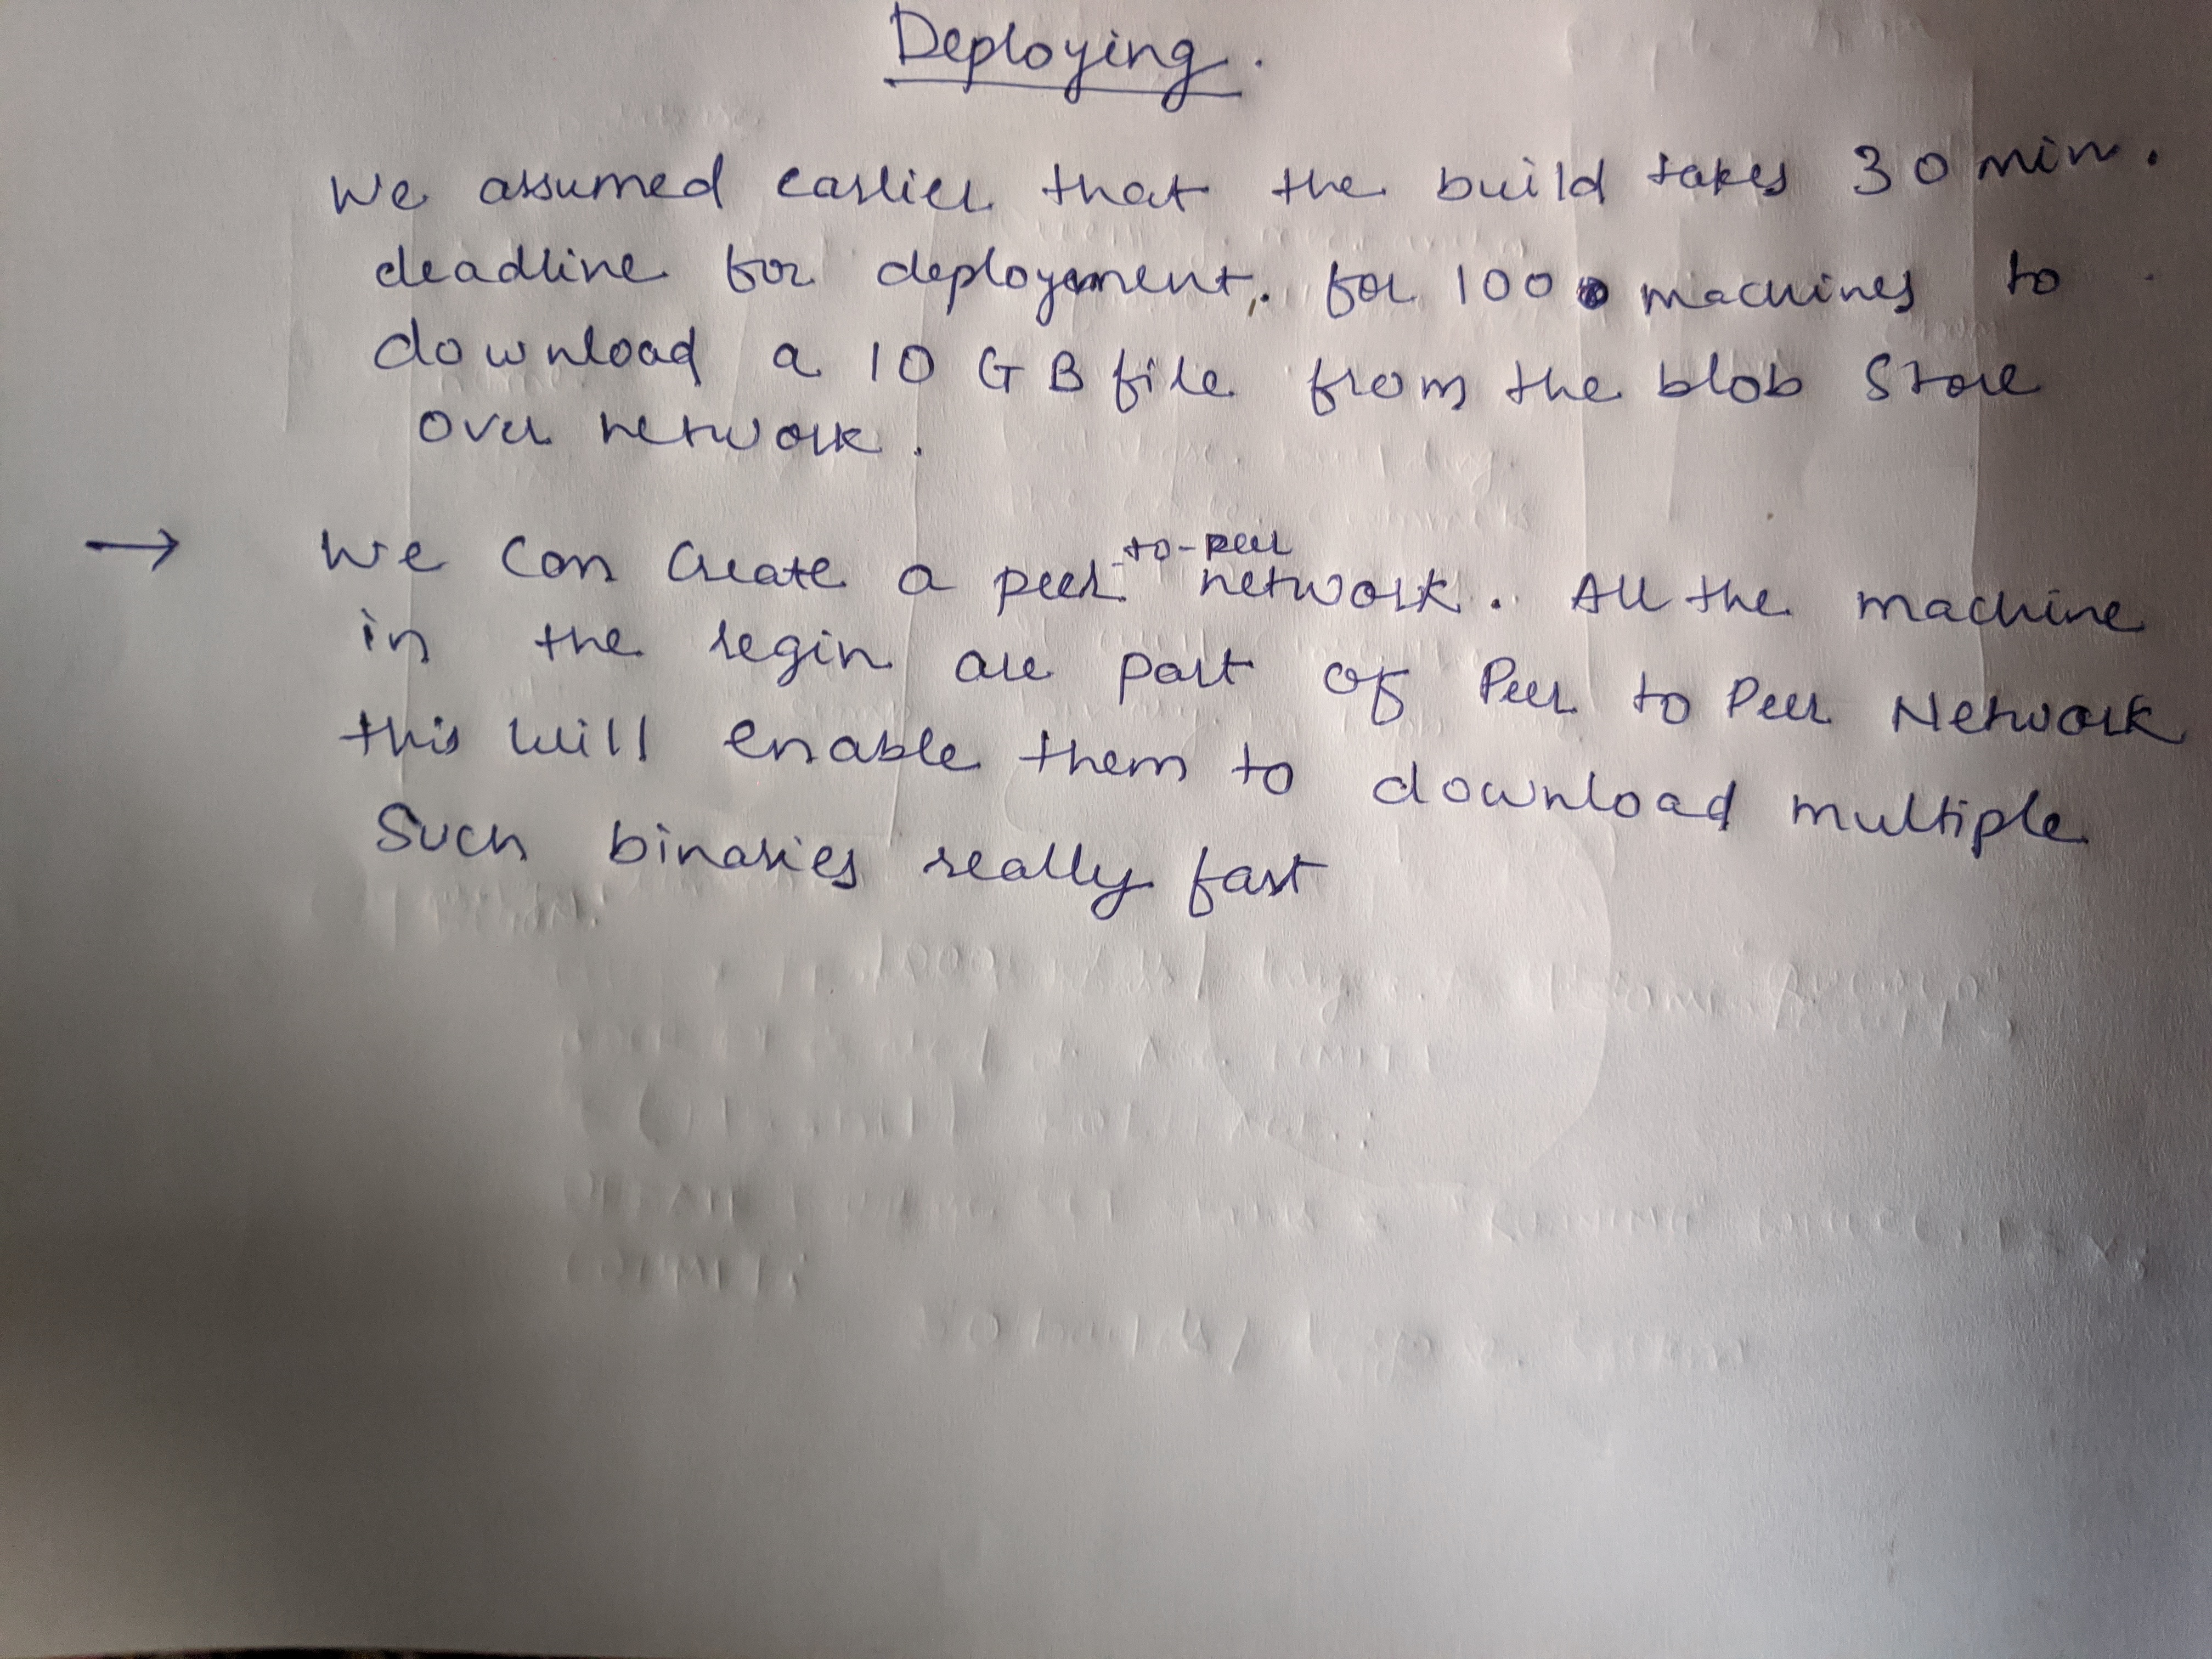 Deploying.
We assumed earlier that the build takes 30 min.
deadline for deployment. for 100 machines to
download a 10 GB file from the blob store
over network.
→ We can create a peer-to-peer network. All the machine
in the regin are part of Peer to Peer Network
this will enable them to download multiple
Such binaries really fast